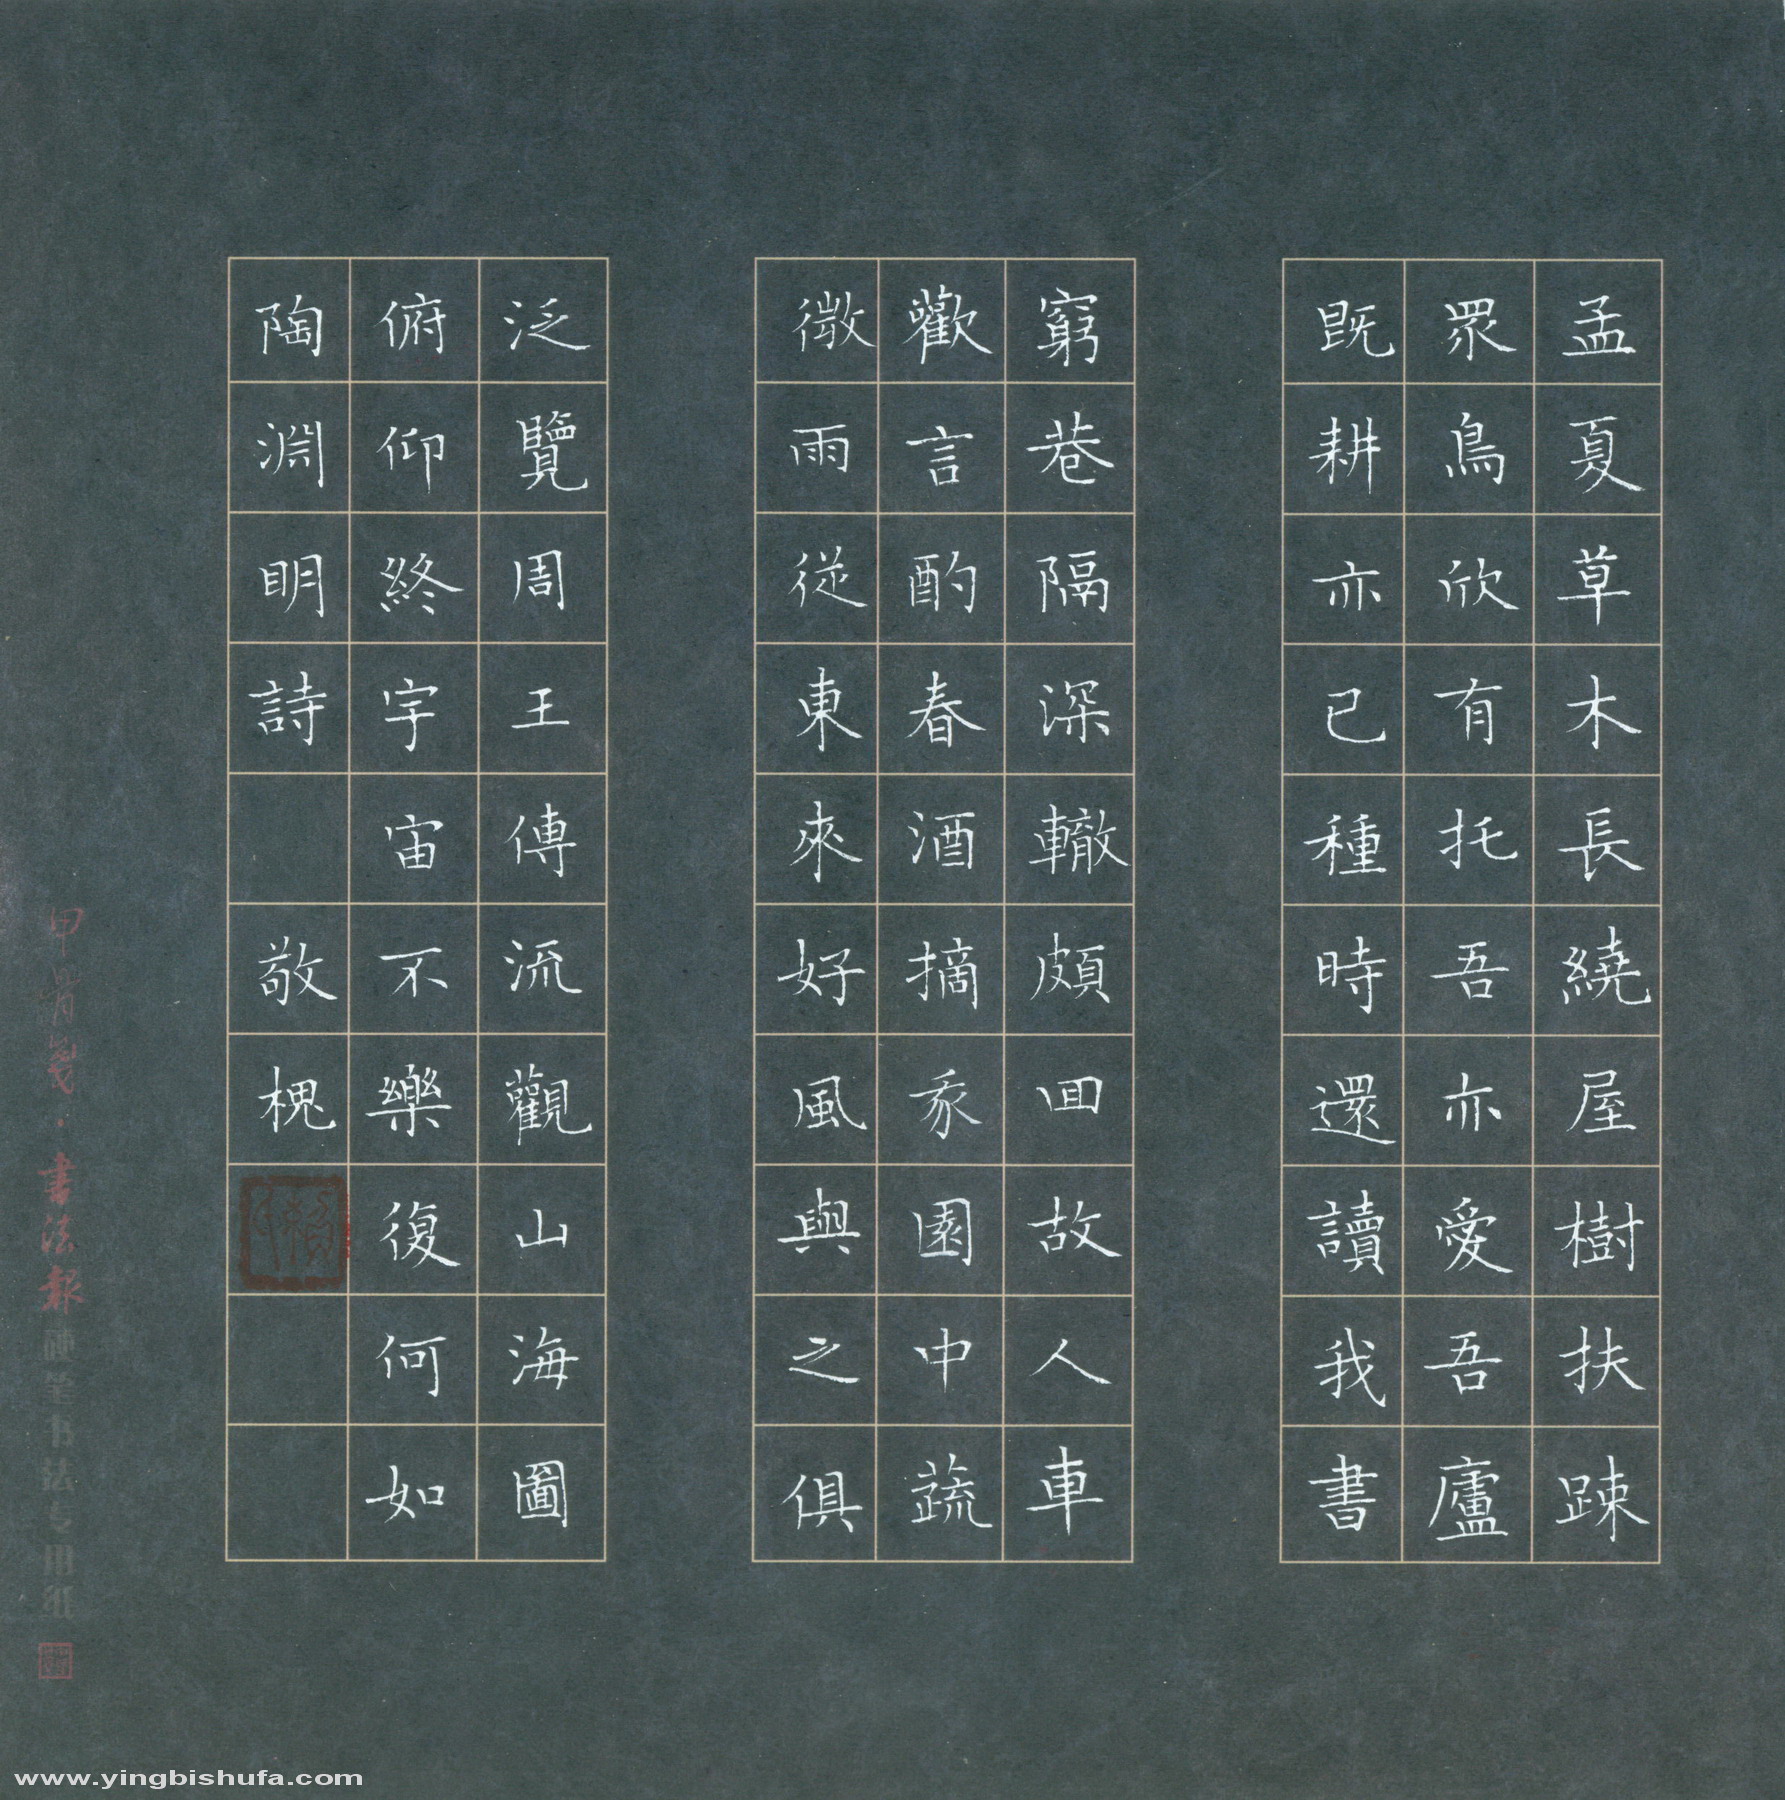 孟夏草木長繞屋樹扶踈
眾鳥欣有托吾亦愛吾廬
既耕亦已種時還讀我書
窮巷隔深轍頗回故人車
歡言酌春酒摘我園中蔬
微雨從東來好風與之俱
泛覽周王傳流觀山海圖
俯仰終宇宙不樂復何如
陶淵明詩 敬槐
甲骨箋·書法報硬笔书法专用纸
www.yingbishufa.com